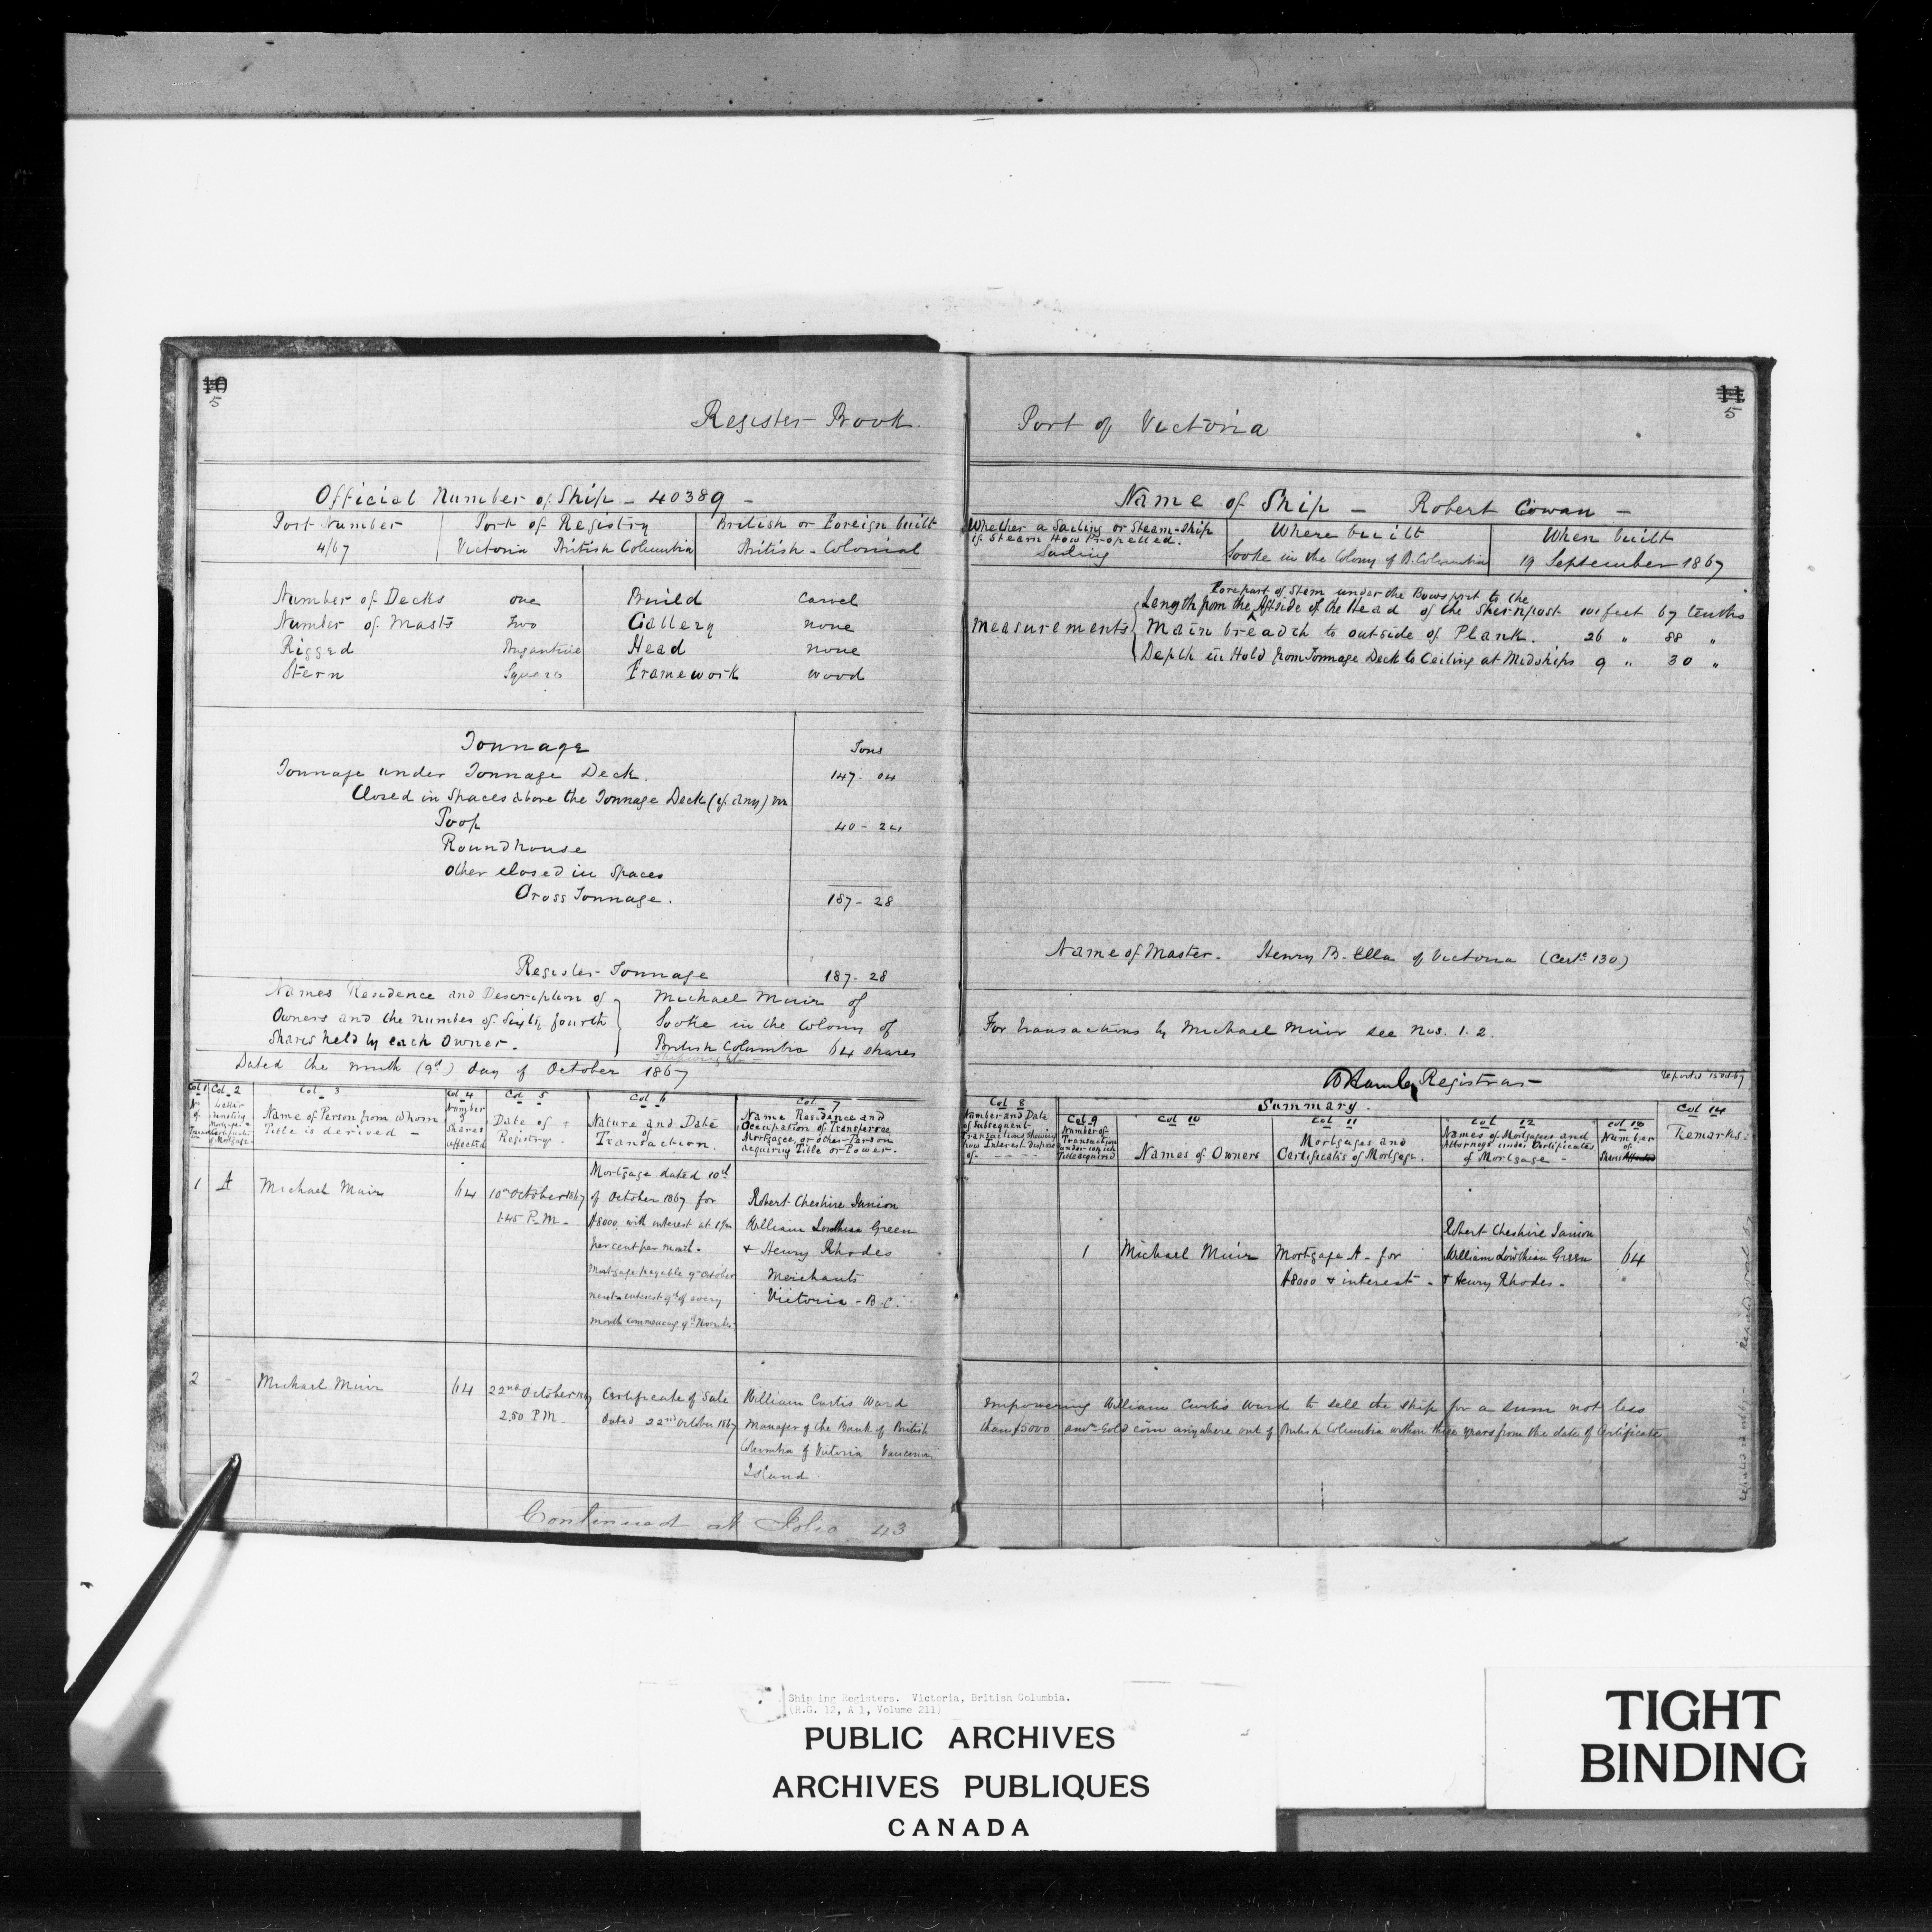 10
5
Register Book
Official Number of Ship - 40389 -
Port Number
4/67
Port of Registry
Victoria British Columbia
British or Foreign built
British - Colonial
Number of Decks one
Number of Masts Two
Rigged Brigantine
Stern Square
Build Carvel
Gallery none
Head none
Framework wood
Tonnage Tons
Tonnage under Tonnage Deck. 147 - 04
Closed in Spaces above the Tonnage Deck (if any) viz
Poop 40 - 24
Roundhouse
Other closed in Spaces
Gross Tonnage. 187 - 28
Register Tonnage 187 - 28
Names Residence and Description of
Owners and the number of Sixty fourth
Shares held by each Owner -
Michael Muir of
Sooke in the Colony of
British Columbia 64 shares
Shipwright
Dated the ninth (9th) day of October 1867
Col 1
No of
Col. 2
Letter
Col. 3
Name of Person from whom
Title is derived -
Col 4
Number
of
Shares
affected
Col 5
Date of
Registry.
Col 6
Nature and Date
of
Transaction.
Col. 7
Name Residence and
Occupation of Transferree
Mortgagee, or other Person
acquiring Title or Power.
1 A Michael Muir 64
10th October 1867
1.45 P.M.
Mortgage dated 10th
of October 1867 for
$8000 with interest at
per cent per month.
Mortgage payable 9th October
next interest 9th of every
month commencing 9th
Robert Cheshire Janion
William Lowthian Green
& Henry Rhodes
Merchants
Victoria - B.C.
2 - Michael Muir 64
22nd October 1867
2.50 P.M.
Certificate of Sale
dated 22nd October 1867
William Curtis Ward
Manager of the Bank of British
Columbia of Victoria Vancouver
Island
Continued at Folio 43
11
5
Port of Victoria
Name of Ship - Robert Cowan -
Whether a Sailing or Steam-Ship
if Steam How Propelled.
Sailing
Where built
Sooke in the Colony of B. Columbia
When built
19 September 1867
Measurements
Forepart of Stem under the Bowsprit to the
Length from the Aftside of the Head of the Sternpost 101 feet 67 tenths
Main breadth to outside of Plank. 26 " 88 "
Depth in Hold from Tonnage Deck to Ceiling at Midships 9 " 30 "
Name of Master. Henry B. Ella of Victoria (Certe 130)
For transactions by Michael Muir see Nos. 1. 2.
Registrar
Summary.
Col 8
Number and Date
of Subsequent
Transactions Showing
how Interest disposed
of
Col 9
Number of
Transaction
under which
Title acquired
Col 10
Names of Owners
Col 11
Mortgages and
Certificates of Mortgage.
Col 12
Names of Mortgagees and
Attorneys under Certificates
of Mortgage -
Col 13
Number
of
Shares Affected
Col 14
Remarks.
1 Michael Muir
Mortgage A - for
$8000 & interest -
Robert Cheshire Janion
William Lowthian Green
& Henry Rhodes -
64
Empowering William Curtis Ward to sell the ship for a sum not less
than $5000 Gold coin anywhere out of British Columbia within three years from the date of Certificate
Shipping Registers. Victoria, British Columbia.
(R.G. 12, A 1, Volume 211)
PUBLIC ARCHIVES
ARCHIVES PUBLIQUES
CANADA
TIGHT
BINDING